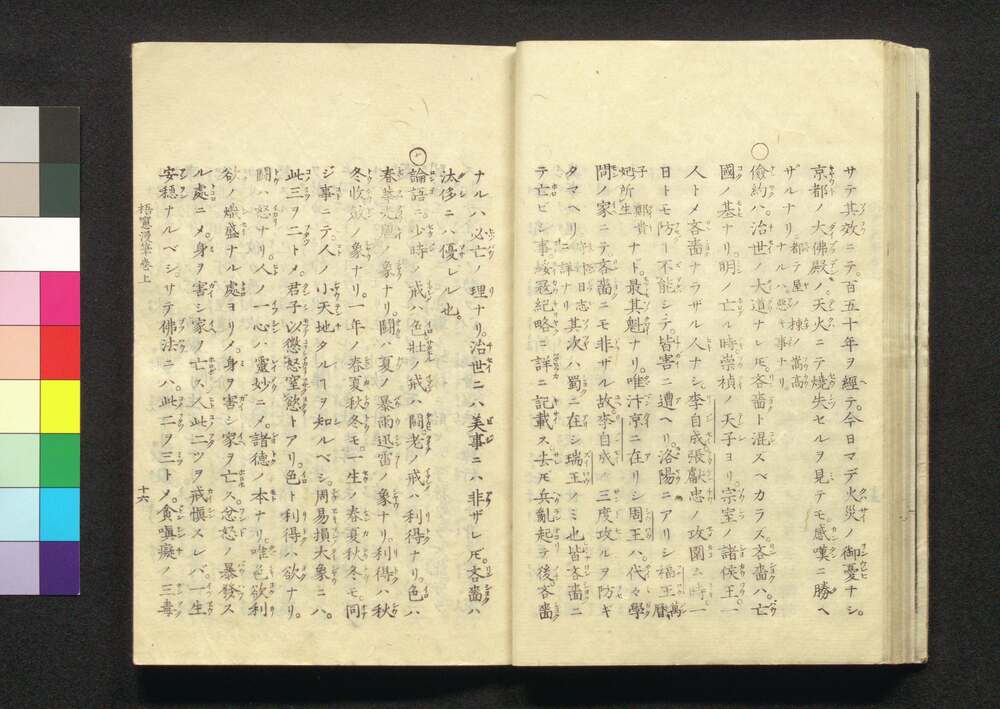 サテ其效ニテ。百五十年ヲ經テ。今日マデ火災ノ御憂ナシ。
京都ノ大佛殿ノ。天火ニテ燒失セルヲ見テモ。感嘆ニ勝ヘ
ザルナリ。都テ屋ノ棟ノ嵩高ナルハ。悪キ事ナリ。
〇儉約ハ治世ノ大道ナレ𪜈。吝嗇ト混スベカラズ。吝嗇ハ。亡
國ノ基ナリ。明ノ亡ル時崇禎ノ天子ヨリ。宗室ノ諸侯王一
人トメ吝嗇ナラザル人ナシ。李自成張獻忠ノ攻圍ニ。時一
日トモ防フ不能シテ。皆害ニ遭ヘリ。洛陽ニアリシ福王萬曆
子鄭貴妃所生ナド。最其魁ナリ。唯汴京ニ在リシ周王ハ。代々學
問ノ家ニテ。吝嗇ニモ非ザル故。李自成ノ三度攻ルヲ防ギ
タマヘリ日志ニ詳ナリ其次ハ。蜀ニ在シ瑞王ノミ也皆吝嗇ニ
テ亡ビシ事。綏冦紀略ニ詳ニ記載ス。去𪜈兵亂起テ後。吝嗇
ナルハ必亡ノ理ナリ。治世ニハ美事ニハ非ザレ𪜈。吝嗇ハ
汰侈ニハ優レル也。
〇論語ニ。少時ノ戒ハ色。壯ノ戒ハ鬪。老ノ戒ハ利得ナリ。色ハ
春ノ象ナリ。鬪ハ夏ノ暴雨迅雷ノ象ナリ。利得ハ秋
冬收斂ノ象ナリ。一年ノ春夏秋冬モ。一生ノ春夏秋冬モ。同
ジ事ニテ。人ノ小天地タルヿヲ知ルベシ。周易損大象ニハ。
此三ヲ二トメ。君子以懲忿窒慾トアリ。色ト利得ハ欲ナリ。
鬪ハ怒ナリ。人ノ一心ハ靈妙ニメ。諸德ノ本ナリ。唯色欲利
欲ノ熾盛ナル處ヨリメ。身ヲ害シ家ヲ亡ス。忿怒ノ暴發ス
ル處ニメ。身ヲ害シ家ノ亡ス。人此二ツヲ戒愼スレバ。一生
安穩ナルベシ。サテ佛法ニハ。此二ヲ三トメ。貪嗔癡ノ三毒
梧窓漫筆卷上
十六